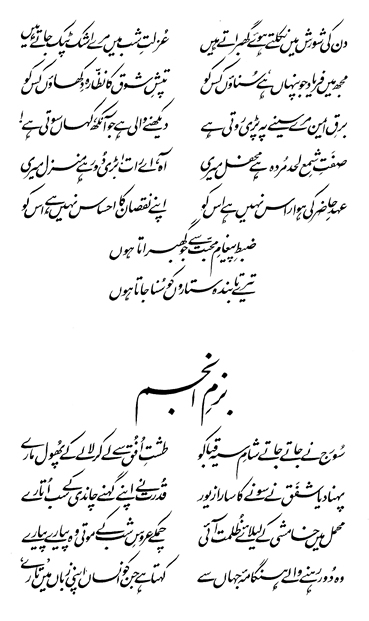 دن کی شورش میں نکلتے ہوئے گھبراتے ہیں عزلتِ شب میں مرے اشک ٹپک جاتے ہیں
مجھ میں فریاد جو پنہاں ہے سناؤں کس کو تپشِ شوق کا نظارہ دکھاؤں کس کو
برقِ ایمن مرے سینے پہ پڑی روتی ہے دیکھنے والی ہے جو آنکھ کہاں سوتی ہے!
صفتِ شمعِ لحد مردہ ہے محفل میری آہ، اے رات! بڑی دور ہے منزل میری
عہدِ حاضر کی ہوا راس نہیں ہے اس کو اپنے نقصان کا احساس نہیں ہے اس کو
ضبطِ پیغامِ محبت سے جو گھبراتا ہوں
تیرے تابندہ ستاروں کو سنا جاتا ہوں
بزمِ انجم
سورج نے جاتے جاتے شامِ سیہ قبا کو طشتِ افق سے لے کر لالے کے پھول مارے
پہنا دیا شفق نے سونے کا سارا زیور قدرت نے اپنے گہنے چاندی کے سب اتارے
محمل میں خامشی کے لیلائے ظلمت آئی چمکے عروسِ شب کے موتی وہ پیارے پیارے
وہ دور رہنے والے ہنگامۂ جہاں سے کہتا ہے جن کو انساں اپنی زباں میں تارے